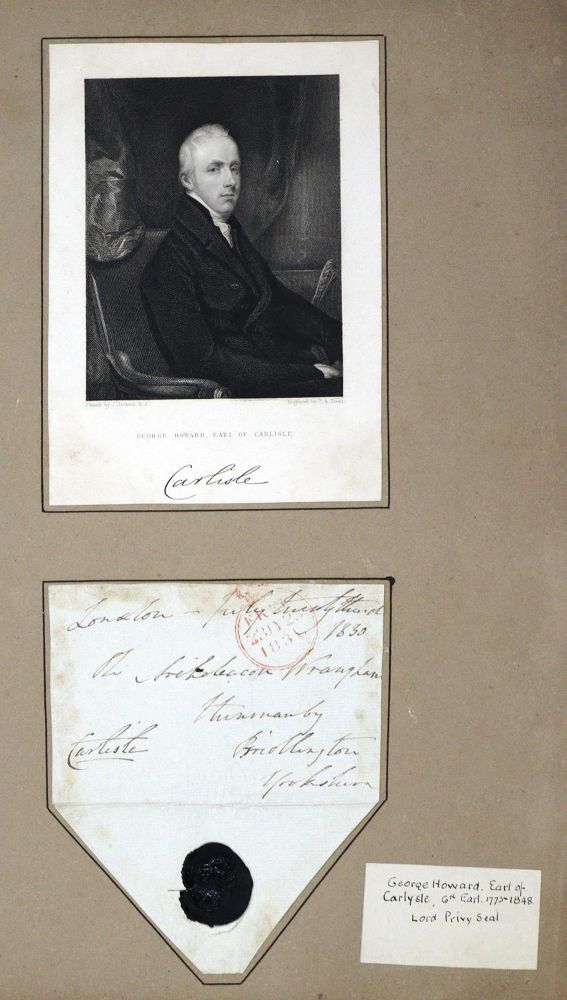 Painted by J. Jackson, R.A.
Engraved by T. A. Dean
GEORGE HOWARD, EARL OF CARLISLE.
Carlisle
London - July Twenty third
1830
Archdeacon Wrangham
Hunmanby
Carlisle Bridlington
Yorkshire
FREE
183
George Howard. Earl of
Carlysle, 6th Earl. 1773-1848.
Lord Privy Seal